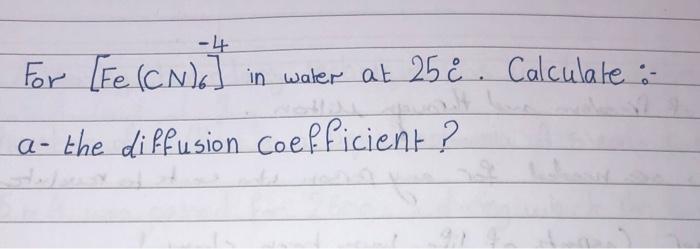 -4
For [Fe(CN)6] in water at 25°C. Calculate :-
a- the diffusion coefficient ?